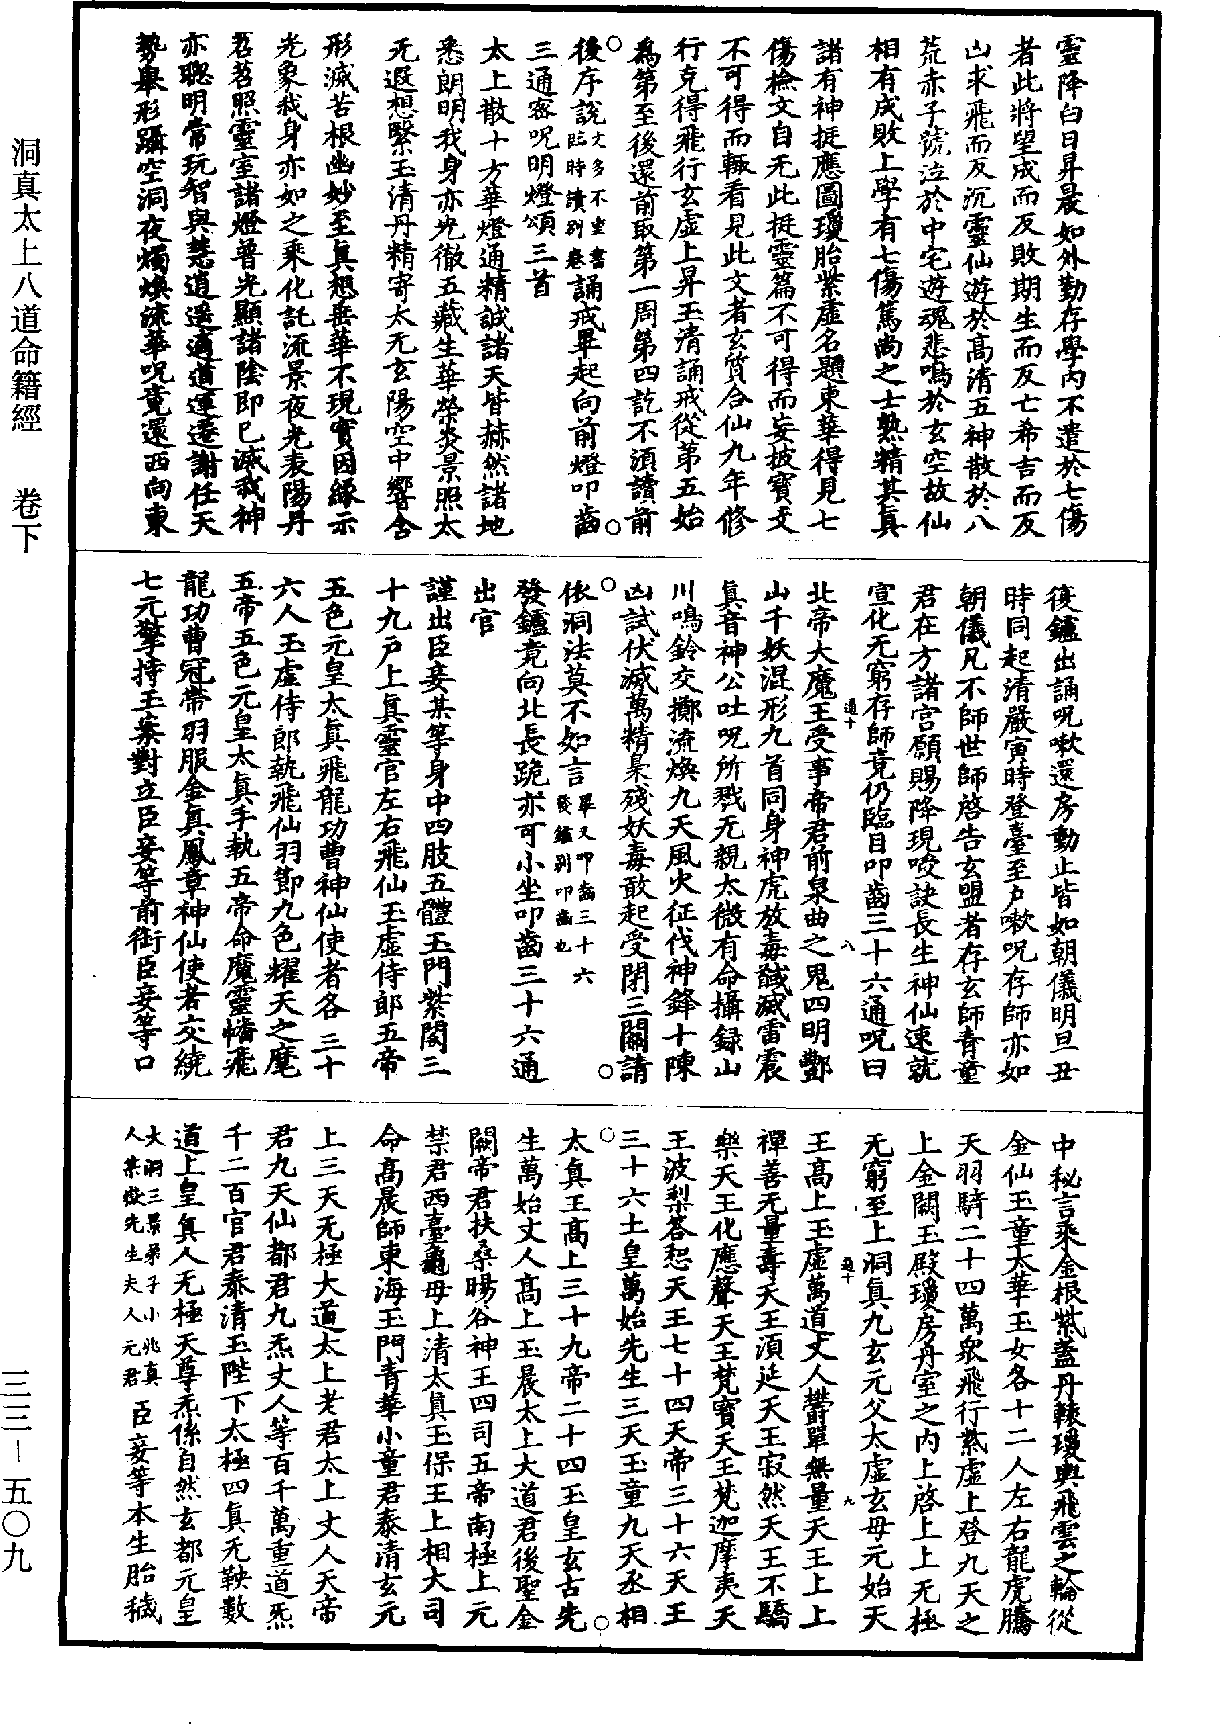 洞真太上八道命籍經　卷下
三三—五〇九
靈降白日昇晨如外勤存學內不遣於七傷
者此將望成而反敗期生而反亡希吉而反
凶求飛而反沉靈仙遊於高清五神散於八
荒赤子號泣於中宅遊魂悲鳴於玄空故仙
相有成敗上學有七傷篤尚之士熟精其真
諸有神挺應圖瓊胎紫虛名題東華得見七
傷檢文自无此挺靈篇不可得而妄披寶文
不可得而輒看見此文者玄質合仙九年修
行克得飛行玄虛上昇玉清誦戒從第五始
為第至後還前取第一周第四訖不須讀前
後序說文多不坐書臨時讀別卷誦戒畢起向前燈叩齒
三通密呪明燈頌三首
太上散十方華燈通精誠諸天皆赫然諸地
悉朗明我身亦光徹五藏生華榮炎景照太
无遐想繫玉清丹精寄太无玄陽空中響含
形滅苦根幽妙至真想無華不現實因緣示
光象我身亦如之乘化託流景夜光表陽丹
苕苕照靈室諸燈普光顯諸陰即已滅我神
亦聰明常玩智與慧逍遙適道運遷謝任天
勢舉形躡空洞夜燭煥流華呪竟還西向東
復鑪出誦呪嗽還房動止皆如朝儀明旦丑
時同起清嚴寅時登臺至戶嗽呪存師亦如
朝儀凡不師世師啓告玄盟者存玄師青童
君在方諸宮願賜降現啖訣長生神仙速就
宣化无窮存師竟仍臨目叩齒三十六通呪曰
北帝大魔王受事帝君前泉曲之鬼四明酆
山千妖混形九首同身神虎放毒馘滅雷震
真音神公吐呪所戮无親太微有命攝録山
川鳴鈴交擲流煥九天風火征伐神鋒十陳
凶試伏滅萬精梟殘妖毒敢起受閉三關請
依洞法莫不如言畢又叩齒三十六發鑪別叩齒也
發鑪竟向北長跪亦可小坐叩齒三十六通
出官
謹出臣妾某等身中四肢五體玉門紫閣三
十九戶上真靈官左右飛仙玉虛侍郎五帝
五色元皇太真飛龍功曹神仙使者各三十
六人玉虛侍郎執飛仙羽節九色耀天之麾
五帝五色元皇太真手執五帝命魔靈幡飛
龍功曹冠帶羽服金真鳳章神仙使者交繞
七元擎持玉案對立臣妾等前銜臣妾等口
中秘言乘金根紫蓋丹轅瓊輿飛雲之輪從
金仙玉童太華玉女各十二人左右龍虎騰
天羽騎二十四萬衆飛行紫虛上登九天之
上金闕玉殿瓊房丹室之內上啓上上无極
无窮至上洞真九玄元父太虛玄母元始天
王高上玉虛萬道丈人鬱單無量天王上上
禪善无量壽天王須延天王寂然天王不驕
樂天王化應聲天王梵寶天王梵迦摩夷天
王波梨答恕天王七十四天帝三十六天王
三十六土皇萬始先生三天玉童九天丞相
太真王高上三十九帝二十四玉皇玄古先
生萬始丈人高上玉晨太上大道君後聖金
闕帝君扶桑暘谷神王四司五帝南極上元
禁君西臺龜母上清太真玉保王上相大司
命高晨師東海玉門青華小童君泰清玄元
上三天无極大道太上老君太上丈人天帝
君九天仙都君九炁丈人等百千萬重道炁
千二百官君泰清玉陛下太極四真无鞅數
道上皇真人无極天尊炁係自然玄都元皇
大洞三景弟子小兆真人某嶽先生夫人元君臣妾等本生胎穢
通十
八
通十
九